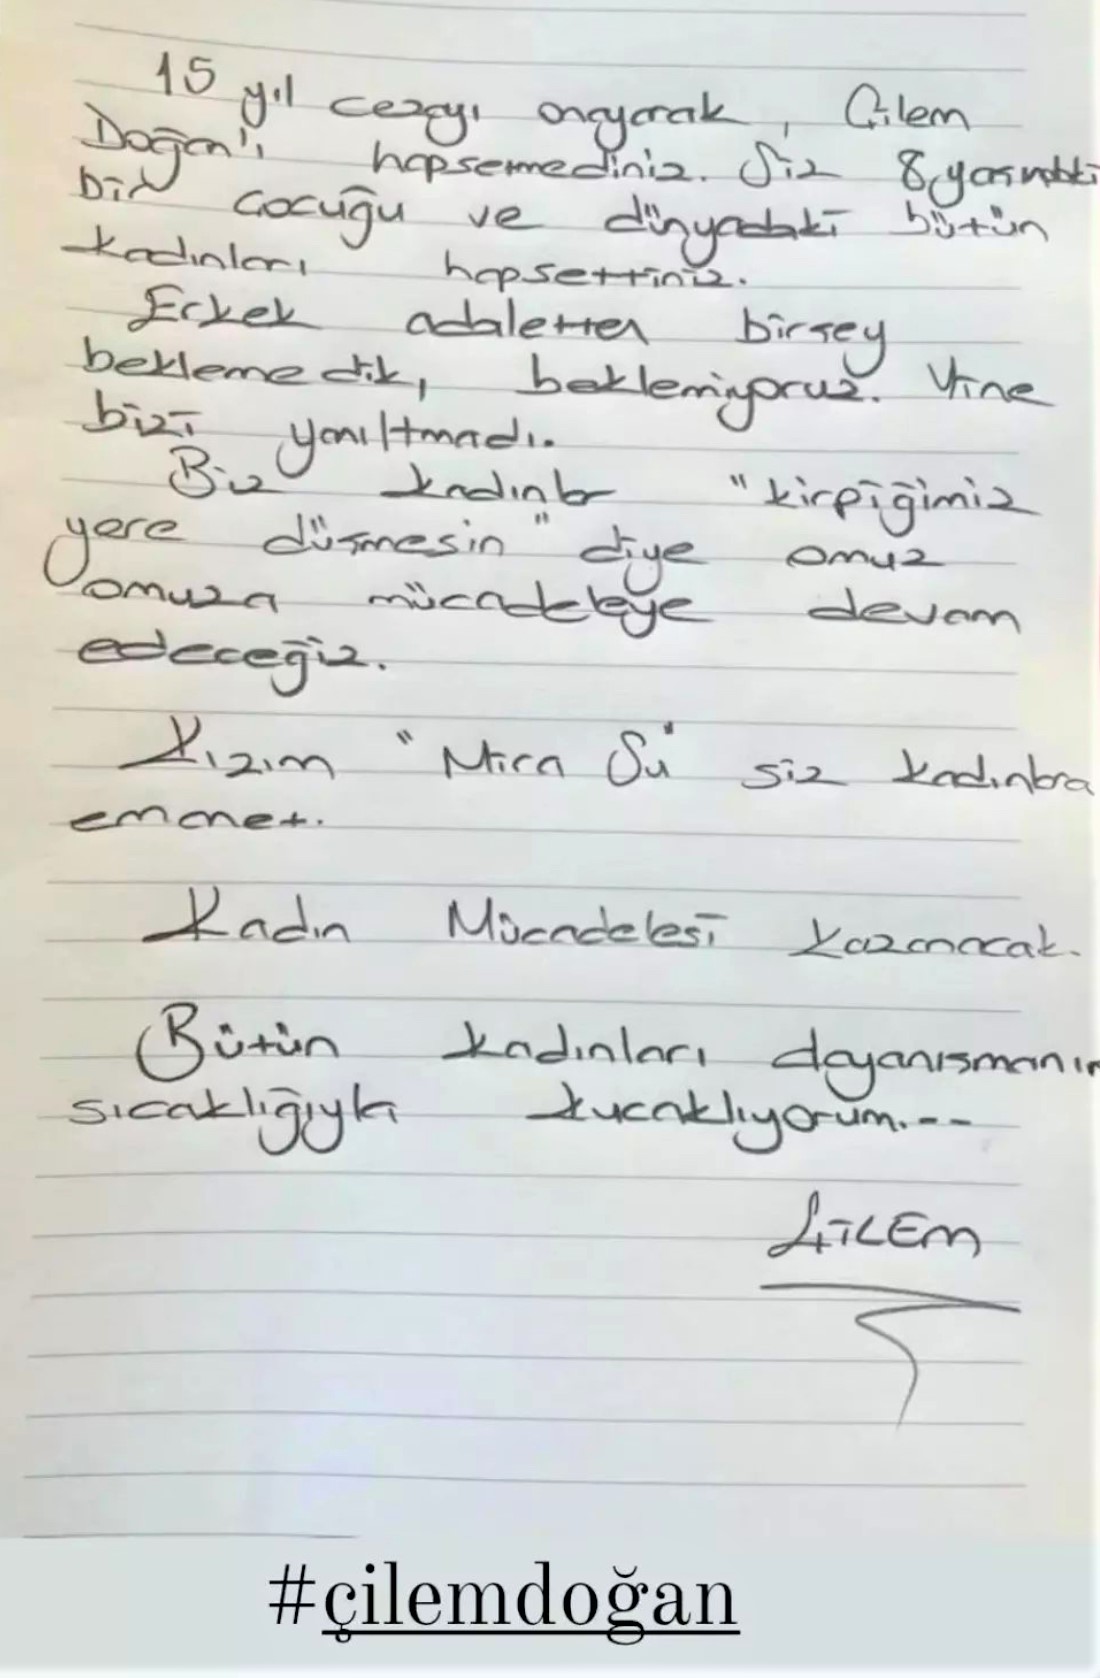 15 yıl cezayı onayarak, Çilem
Doğan'ı hapsemediniz. Siz 8 yaşındaki
bir çocuğu ve dünyadaki bütün
kadınları hapsettiniz.
Erkek adaletten birşey
beklemedik, beklemiyoruz. Yine
bizi yanıltmadı.
Biz kadınlar "kirpiğimiz
yere düşmesin" diye omuz
omuza mücadeleye devam
edeceğiz.
Kızım "Mira Su" siz kadınlara
emanet.
Kadın Mücadelesi kazanacak.
Bütün kadınları dayanışmanın
sıcaklığıyla kucaklıyorum...
ÇİLEM
#çilemdoğan